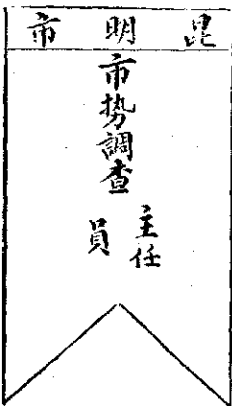 昆明市
市势調查
主任
員